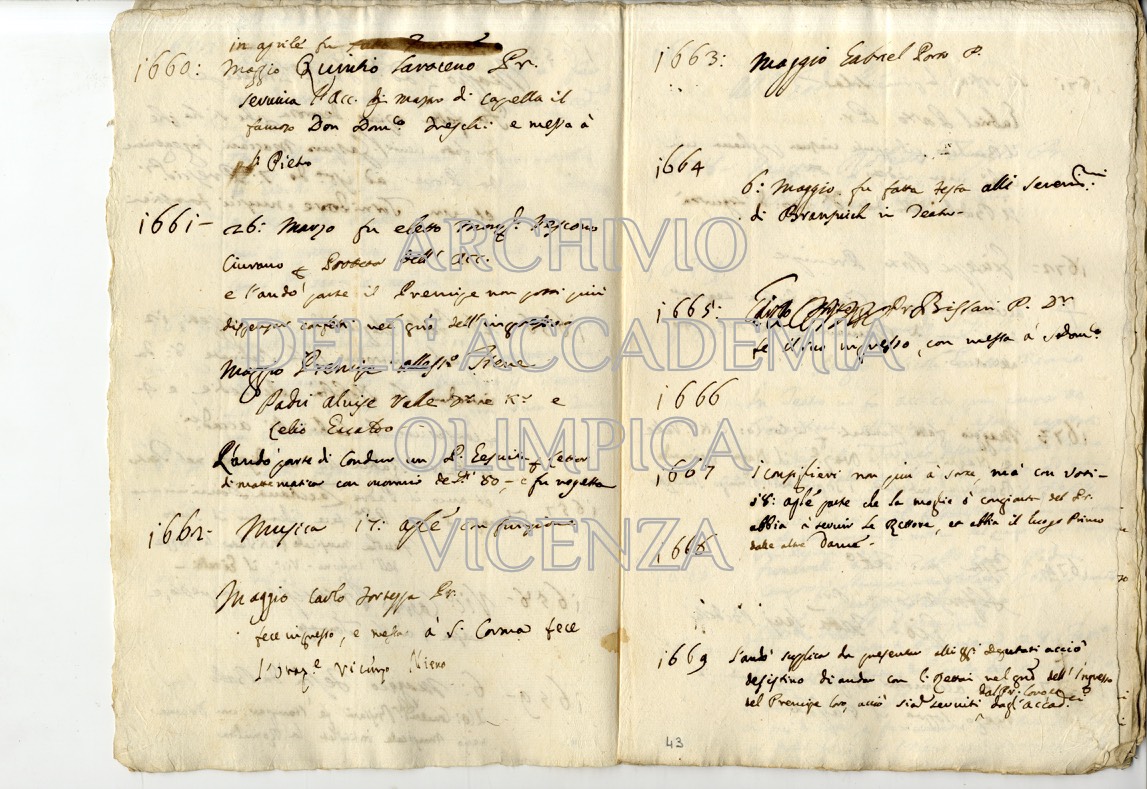 in aprile fu
1660: Maggio Quintio Saraceno Pr.
serviva l'Acc. di Maestro di Capella il
famoso Don Dom.co Freschi e messa à
S. Pietro
1661- 26: Marzo fu eletto Mons.r Vescovo
Civrano Acc.
e l'andò parte il Prencipe non possi più
dispensar confetti nel giro dell'ingresso
Maggio Prencipe
Padri Alvise Valle Kr e
Celio
L'andò parte di Condur un P. Lettor
di mattematica con onorario de D.ti 80 - e fu
1662- Musica 17: Aple con funzion
Maggio Carlo Fortezza Pr.
fece ingresso, e messa à S. Corona fece
l'Oraz.e Vicenzo Nievo
1663: Maggio Gabriel Porto P.
1664
6: Maggio, fu fatta festa alli Seren.mi
di Bransvich in Teatro
1665: Bissari P. Dr
fe il suo ingresso, con messa à S. Dom.co
1666
1667 i Consiglieri non più à sorte, mà con voti-
18: Aple parte che la moglie ò congionta del Pr.
abbia à servir la Rettora, ed abbia il luogo Primo
dalle altre Dame.
1668
1669 l'andò supplica da presentar alli SS.i Deputati acciò
desistino di andar con li Rettori nel giro dell'Ingresso
del Prencipe loro, acciò siano serviti dagl'Accad.ci
dal Pr.
43
ARCHIVIO
DELL'ACCADEMIA
OLIMPICA
VICENZA